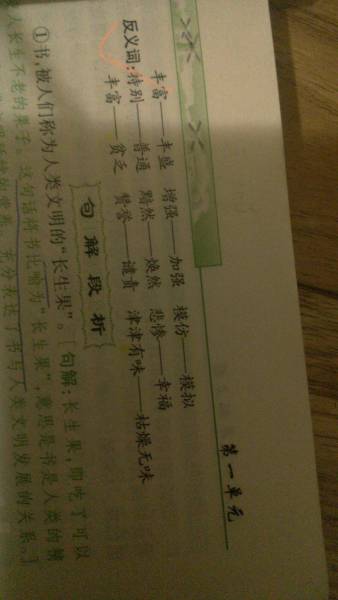 第一单元
丰富——丰盛 增强——加强 模仿——模拟
反义词:特别——普通 黯然——焕然 悲惨——幸福
丰富——贫乏 赞誉——谴责 津津有味——枯燥无味
句解段析
①书,被人们称为人类文明的“长生果”。[句解:长生果,即吃了可以
人长生不老的果子。这句话将书比喻为“长生果”,意思是书是人类的精
充分表达了书与人类文明发展的关系。]